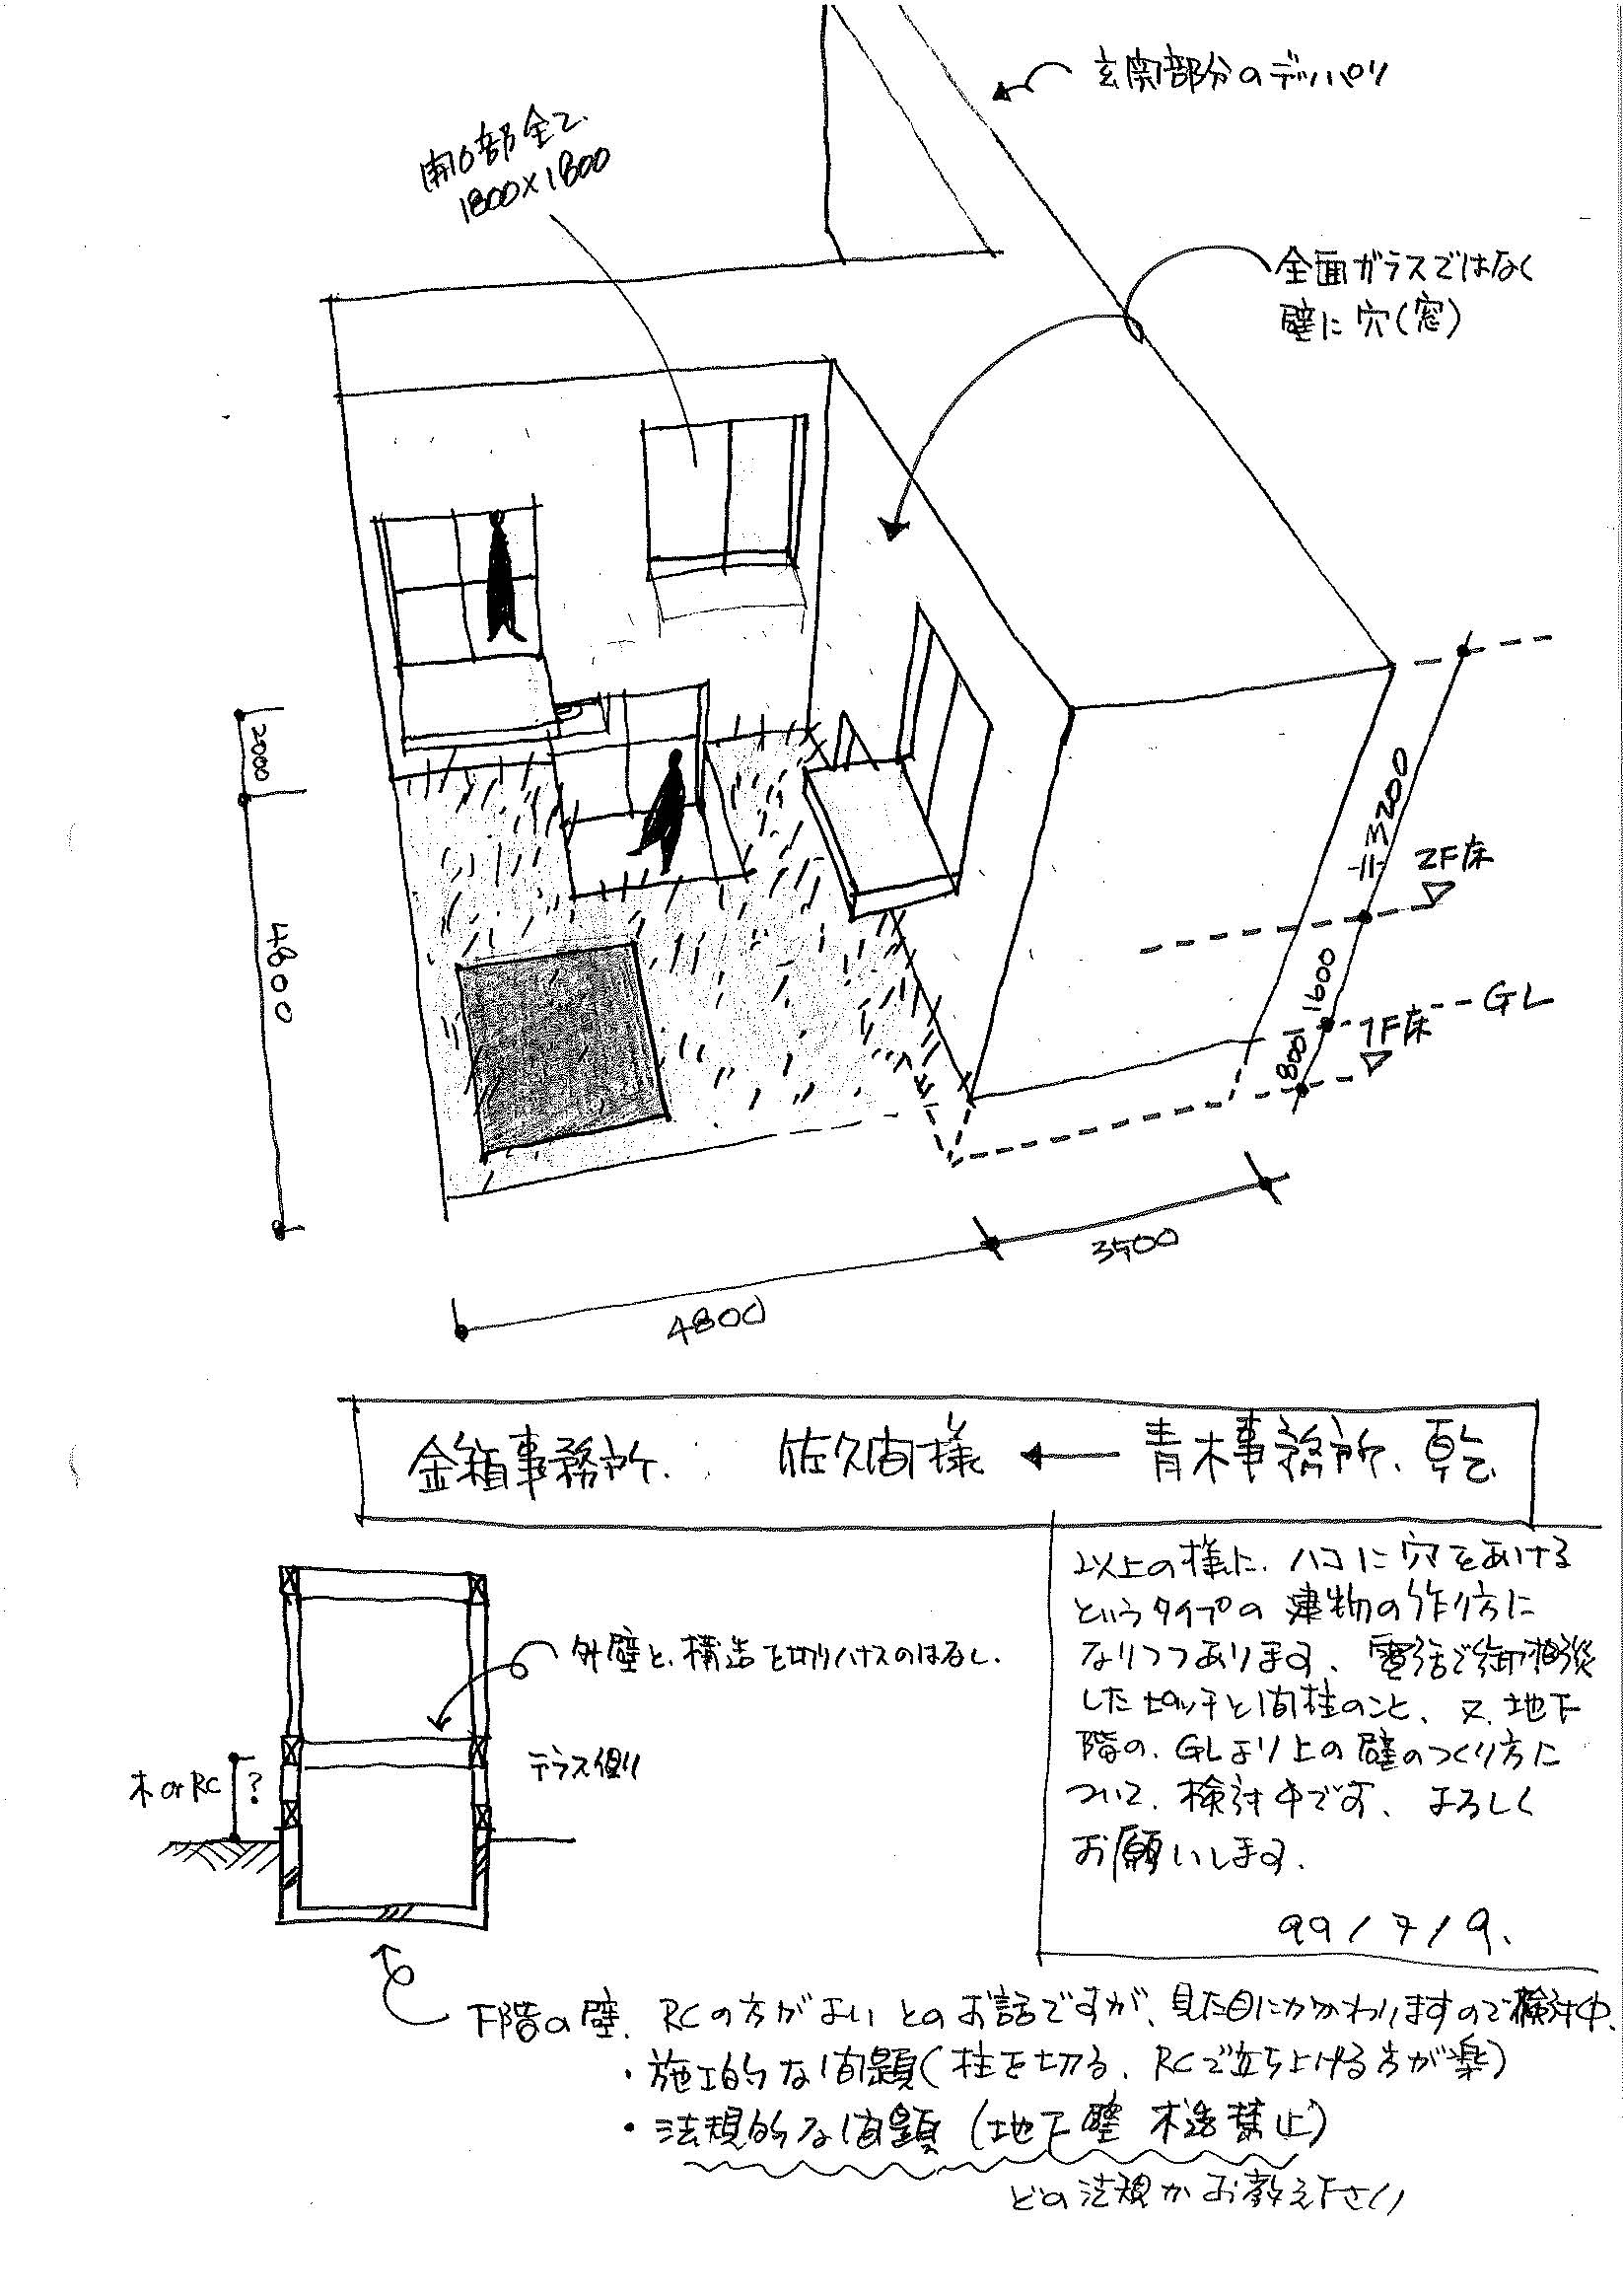 玄関部分のデッパリ
開口部全て
1800×1800
全面ガラスではなく
壁に穴(窓)
2000
4800
≒3200
2F床
1600
GL
1F床
800
3500
4800
金箱事務所. 佐久間様 ← 青木事務所、乾
以上の様に、ハコに穴をあける
というタイプの建物の作り方に
なりつつあります、電話で御相談
したピッチと間柱のこと、又、地下
階の、GLより上の壁のつくり方に
ついて、検討中です、よろしく
お願いします.
99/7/9.
外壁と、構造を切りハナスのはなし.
テラス側
木orRC ?
下階の壁、RCの方がよいとのお話ですが、見た目にかかわりますので検討中.
・施工的な問題(柱を切る、RCで立ち上げる方が楽)
・法規的な問題(地下壁 木造禁止)
どの法規かお教え下さい